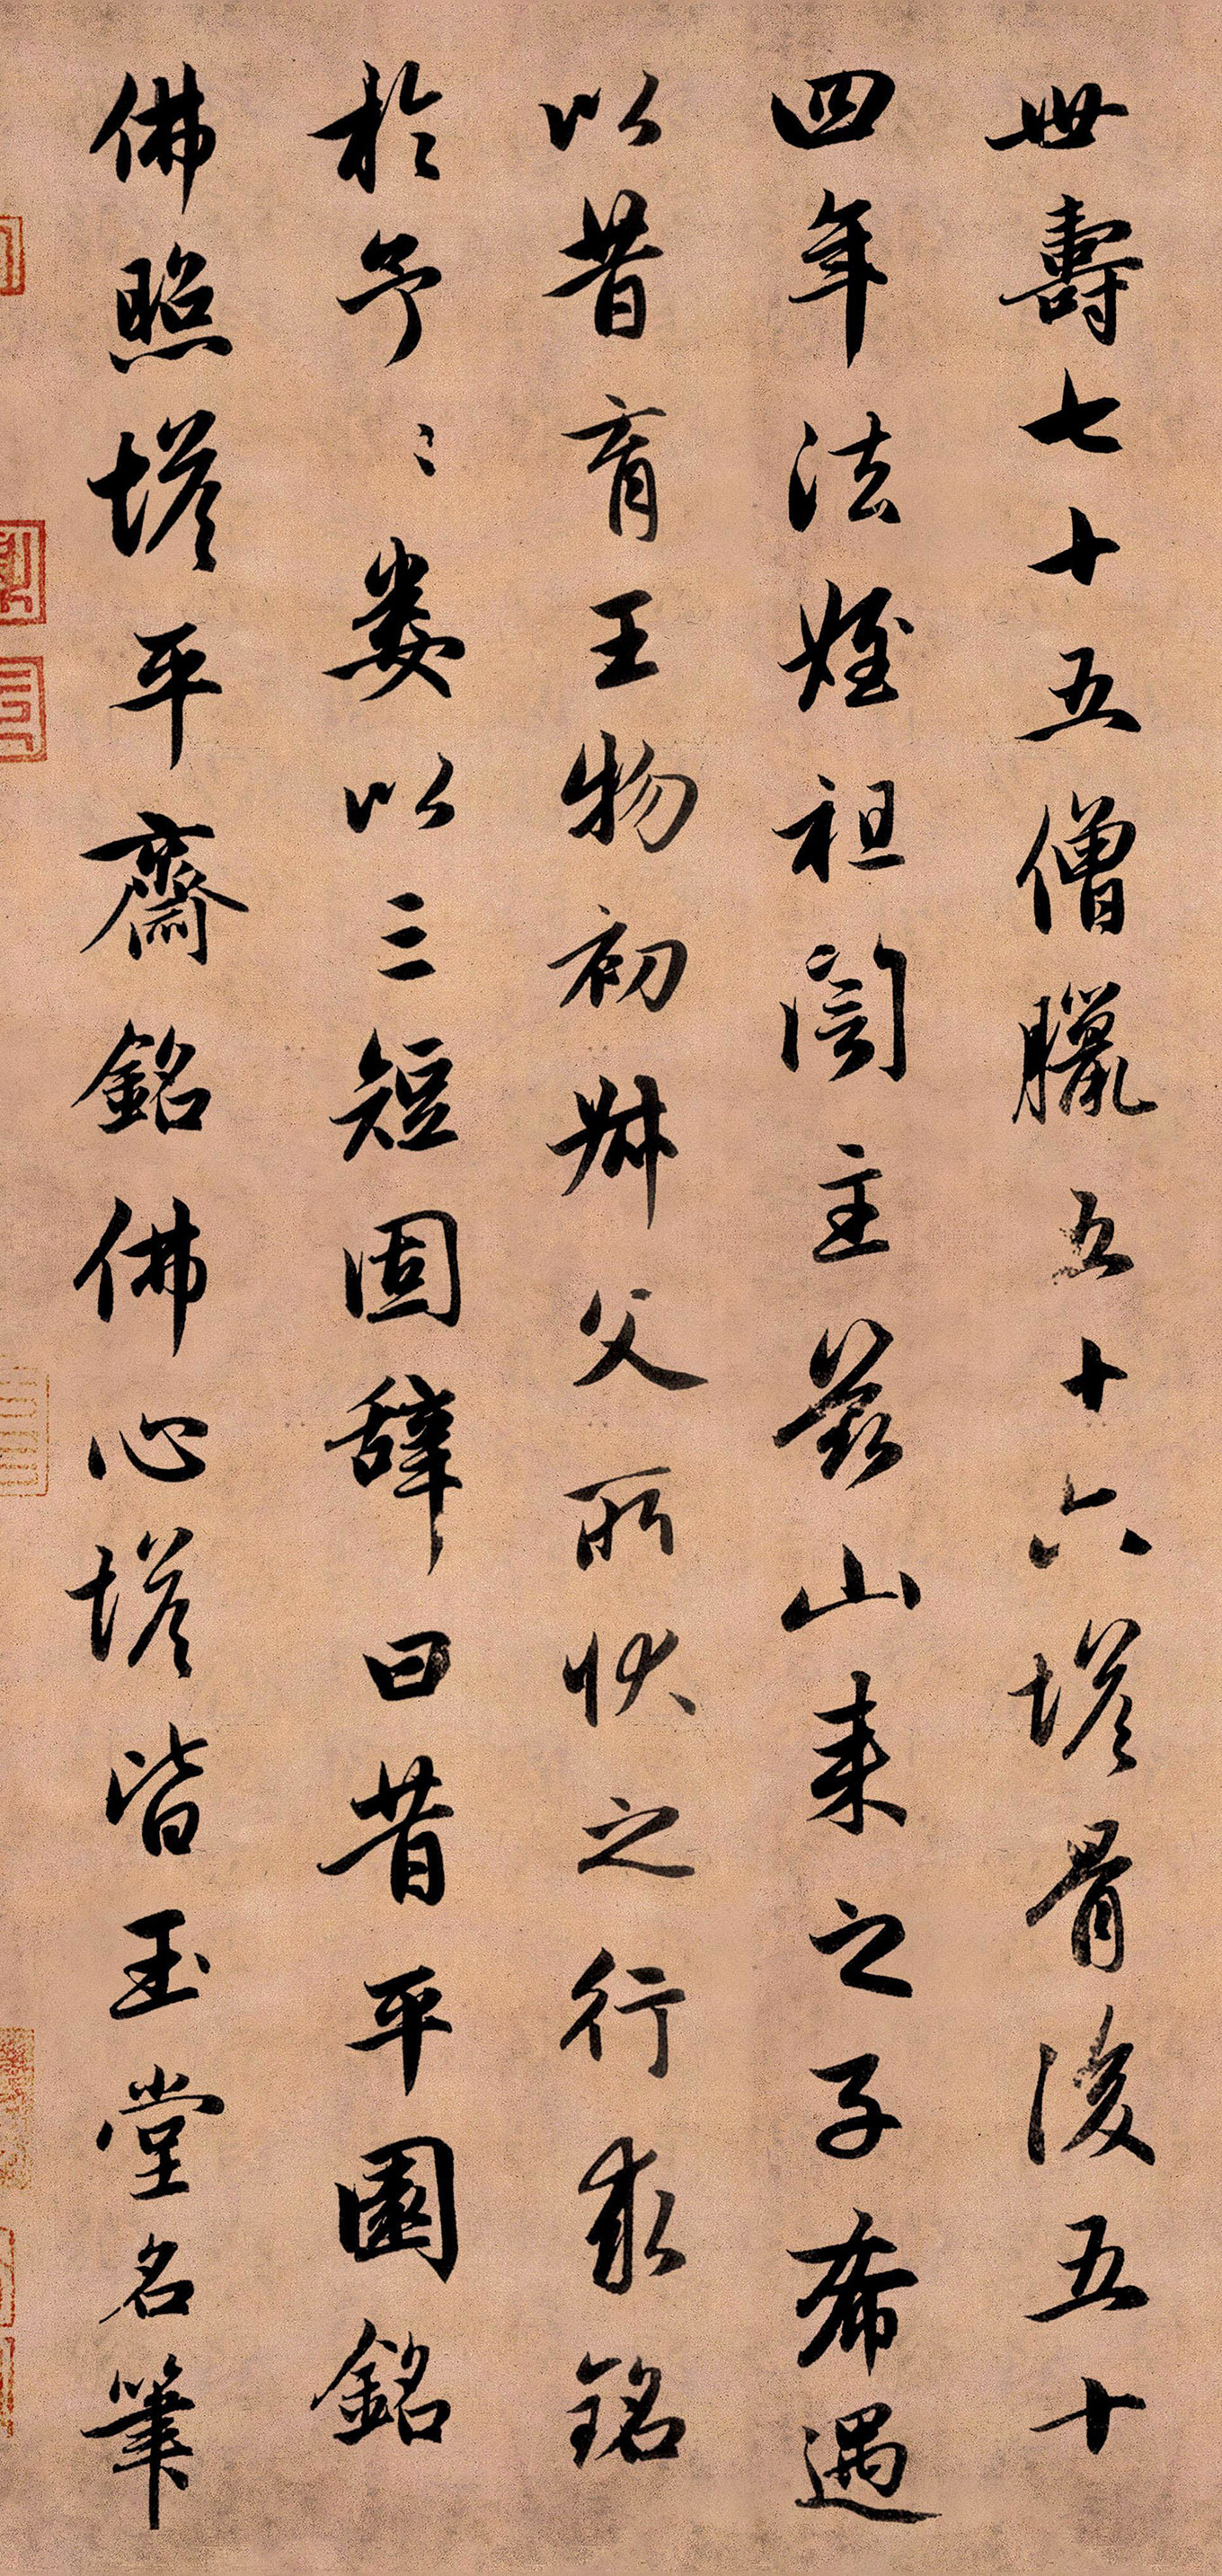 世壽七十五僧臘五十六塔骨後五十
四年法姪祖訚主茲山来之子希遇
以昔育王物初舛父所狀之行求銘
於予〻娄以三短固辞曰昔平園銘
佛照塔平齋銘佛心塔皆玉堂名筆